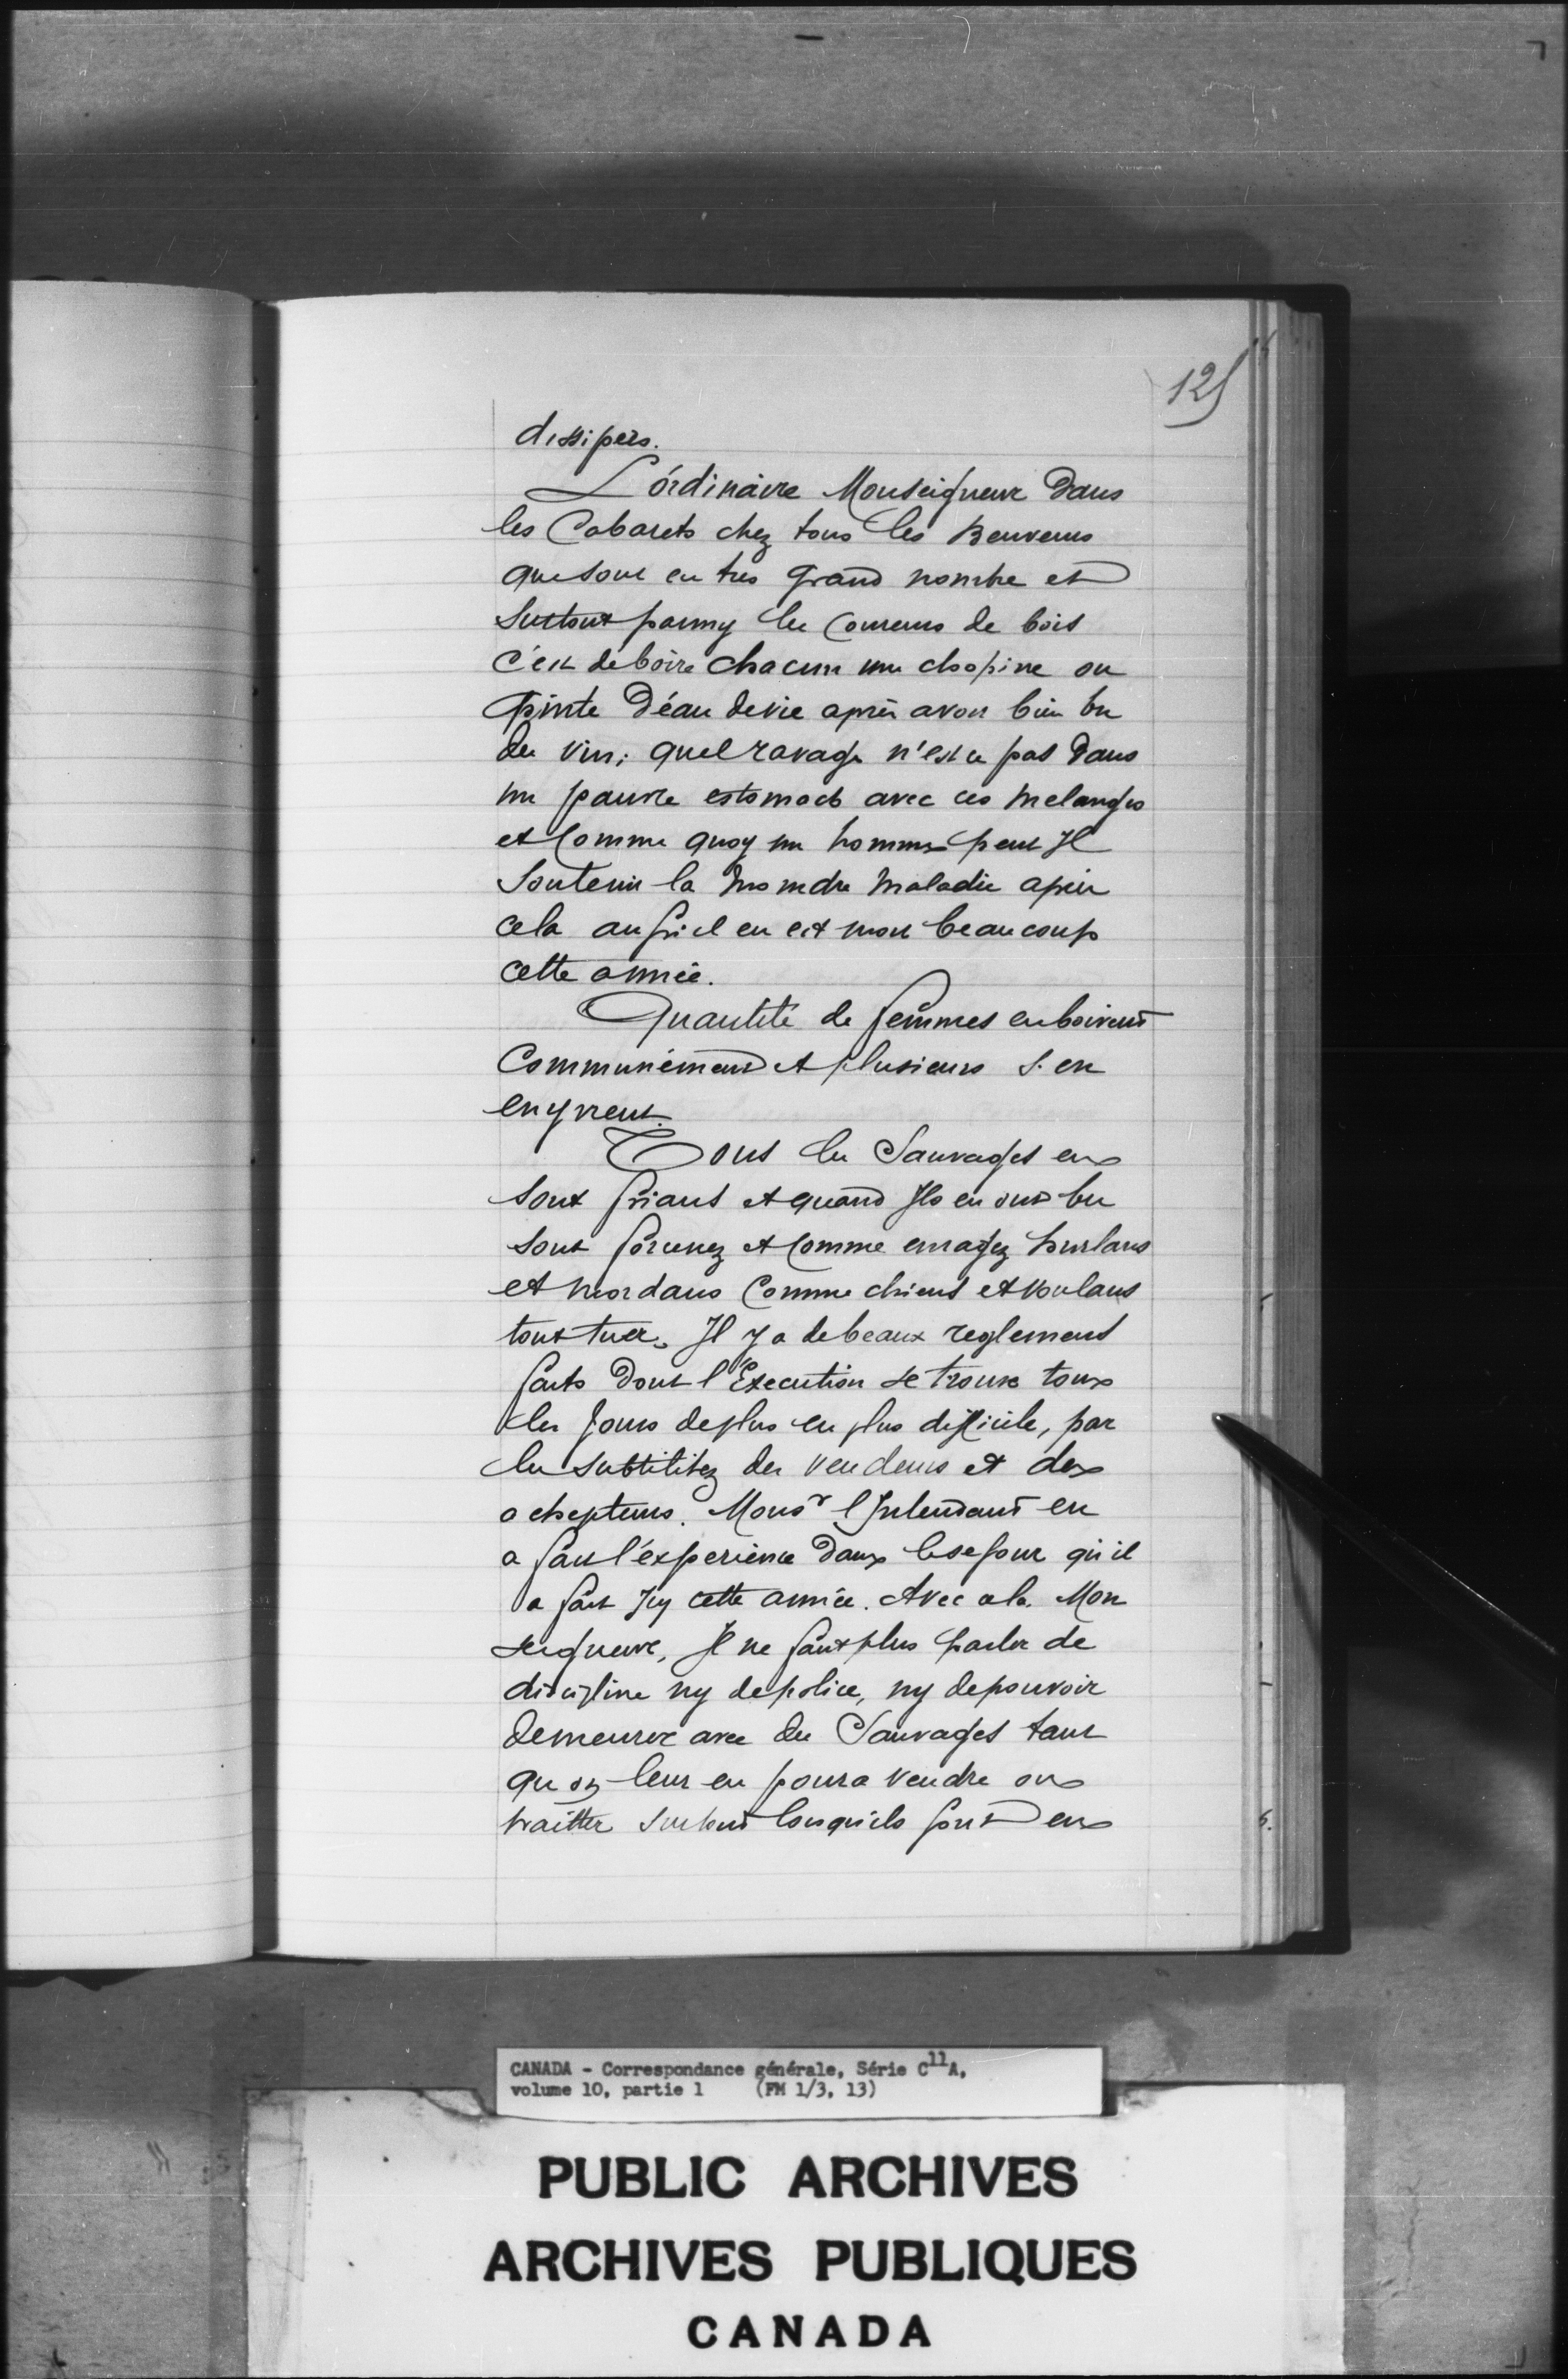 125
dissipers.
L'órdinaire Monseigneur Dans
les Cabarets chez tous les Beuveurs
qui sont en tres grand nombre et
surtout parmy les Coureurs de bois
c'est de boire chacun une chopine ou
pinte D'éau de vie aprés avoir bien bu
du vin; quel ravage n'est ce pas dans
un pauvre estomach avec ces melanges
et Comme quoy un homme peut Il
soutenir la moindre maladie aprés
cela aussi il en est mort beaucoup
cette année.
Quantité de femmes en boivent
Communément et plusieurs s'en
enyvrent.
Tous les Sauvages en
sont frians et quand Ils en ont bu
sont forcenez et Comme enragez hurlans
et mordans Comme chiens et voulans
tout tuer. Il y a de beaux reglements
faits dont l'Execution se trouve tous
les Jours de plus en plus difficile, par
les subtilitez des vendeurs et des
achepteurs. Monsr l'Intendant en
a fait l'experience dans le sejour qu'il
a fait Icy cette année. Avec cela Mon
seigneur, Il ne faut plus parler de
discipline ny de police, ny de pouvoir
demeurer avec des Sauvages tant
qu'on leur en poura vendre ou
traitter surtout lorsqu'ils sont en
6.
CANADA - Correspondance générale, Série C11A,
volume 10, partie 1 (FM 1/3, 13)
PUBLIC ARCHIVES
ARCHIVES PUBLIQUES
CANADA